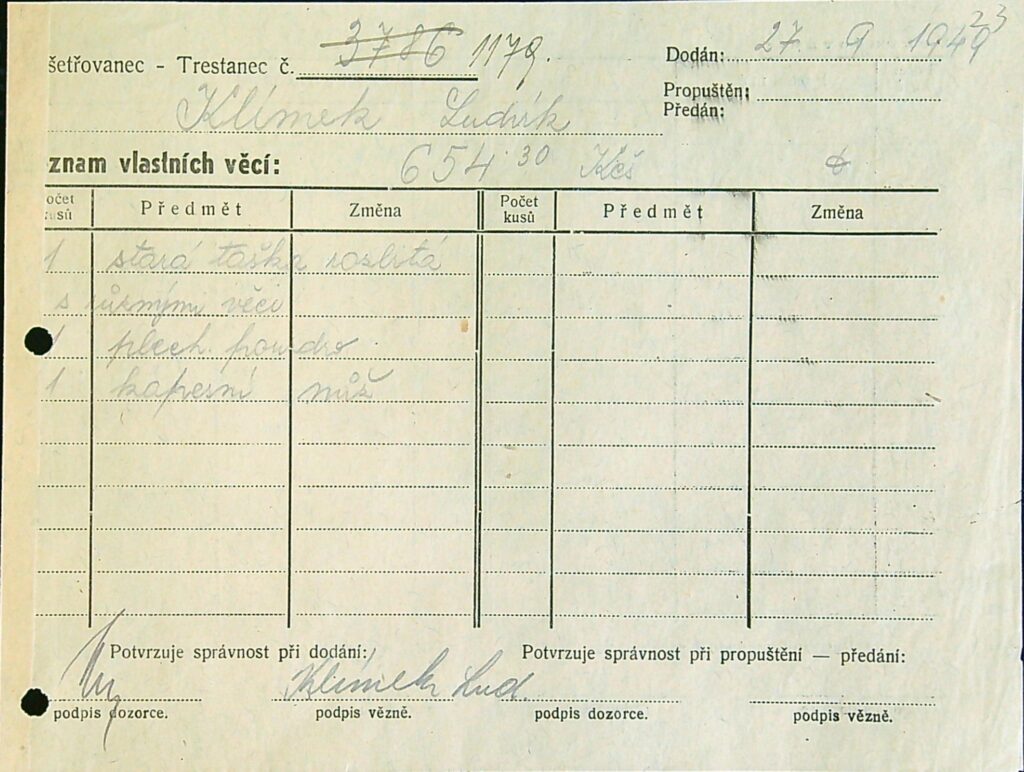 šetřovanec - Trestanec č. 3786 1179.
Dodán: 27. 9 1949 23
Propuštěn:
Předán:
Klímek Ludvík
znam vlastních věcí: 654.30 Kčs
očet kusů Předmět Změna Počet kusů Předmět Změna
1 stará taška rozlitá
s různými věci
1 plech. poudro
1 kapesní nůž
Potvrzuje správnost při dodání: Potvrzuje správnost při propuštění — předání:
Klímek Lud.
podpis dozorce. podpis vězně. podpis dozorce. podpis vězně.